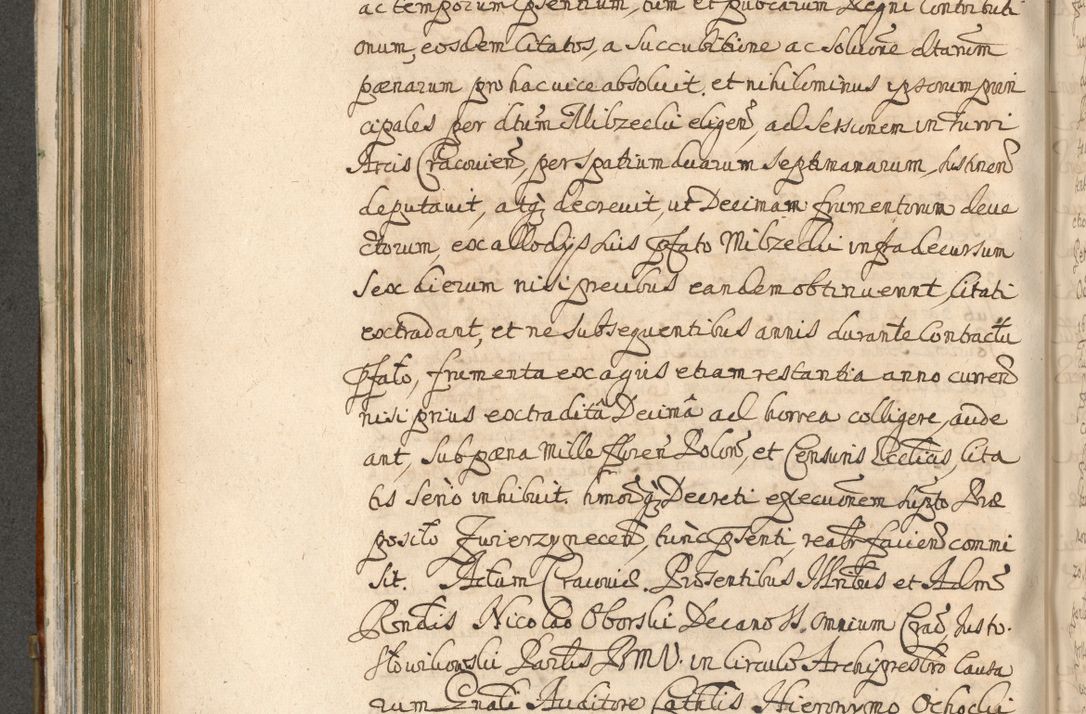 ac temporum pſentium, tum et publicarum Regni Contributi
onum, eosdem Citatos, a Succubitione ac Solũone dtarum̃
pœnarum pro hac vice absoluit, et nihilominus ipsorum prin
cipales per dtũm Mibzecki eligen̄, ad Seſsionem in Turri
Arcis Cracovien̄, per spatium duarum Septimanarum, sustinen̄
deputauit, atq; decreuit, ut Decimam frumentorum deue
ctorum, ex allodijs suis pfato Mibzecki infra decursum
Sex dierum nisi precibus eandem obtinuerint, Citati
extradant, et ne subsequentibus annis durante Contractu
pfato, frumenta ex agris etiam restantia anno curren̄
nisi prius extraditâ Decimâ ad horrea colligere, aude
ant, sub pœna Mille floren̄ Polon̄, et Censuris Ecclicis, Cita
tis serio inhibuit. hmōiq; Decreti execũonem supto Præ
posito Zwierzynecen̄, tunc pſenti, realr̃ facien̄ commi
sit. Actum Cracoviæ. Præsentibus Illribus et Adm̃
Rǹdis Nicolao Oborski Decano SS. Omnium Crac̄, Iusto.
Słowikowski Partis BMV. in Circulo Archipresbrõ Causa
rum Gnali Auditore Cathlis Hieronymo Ochocki